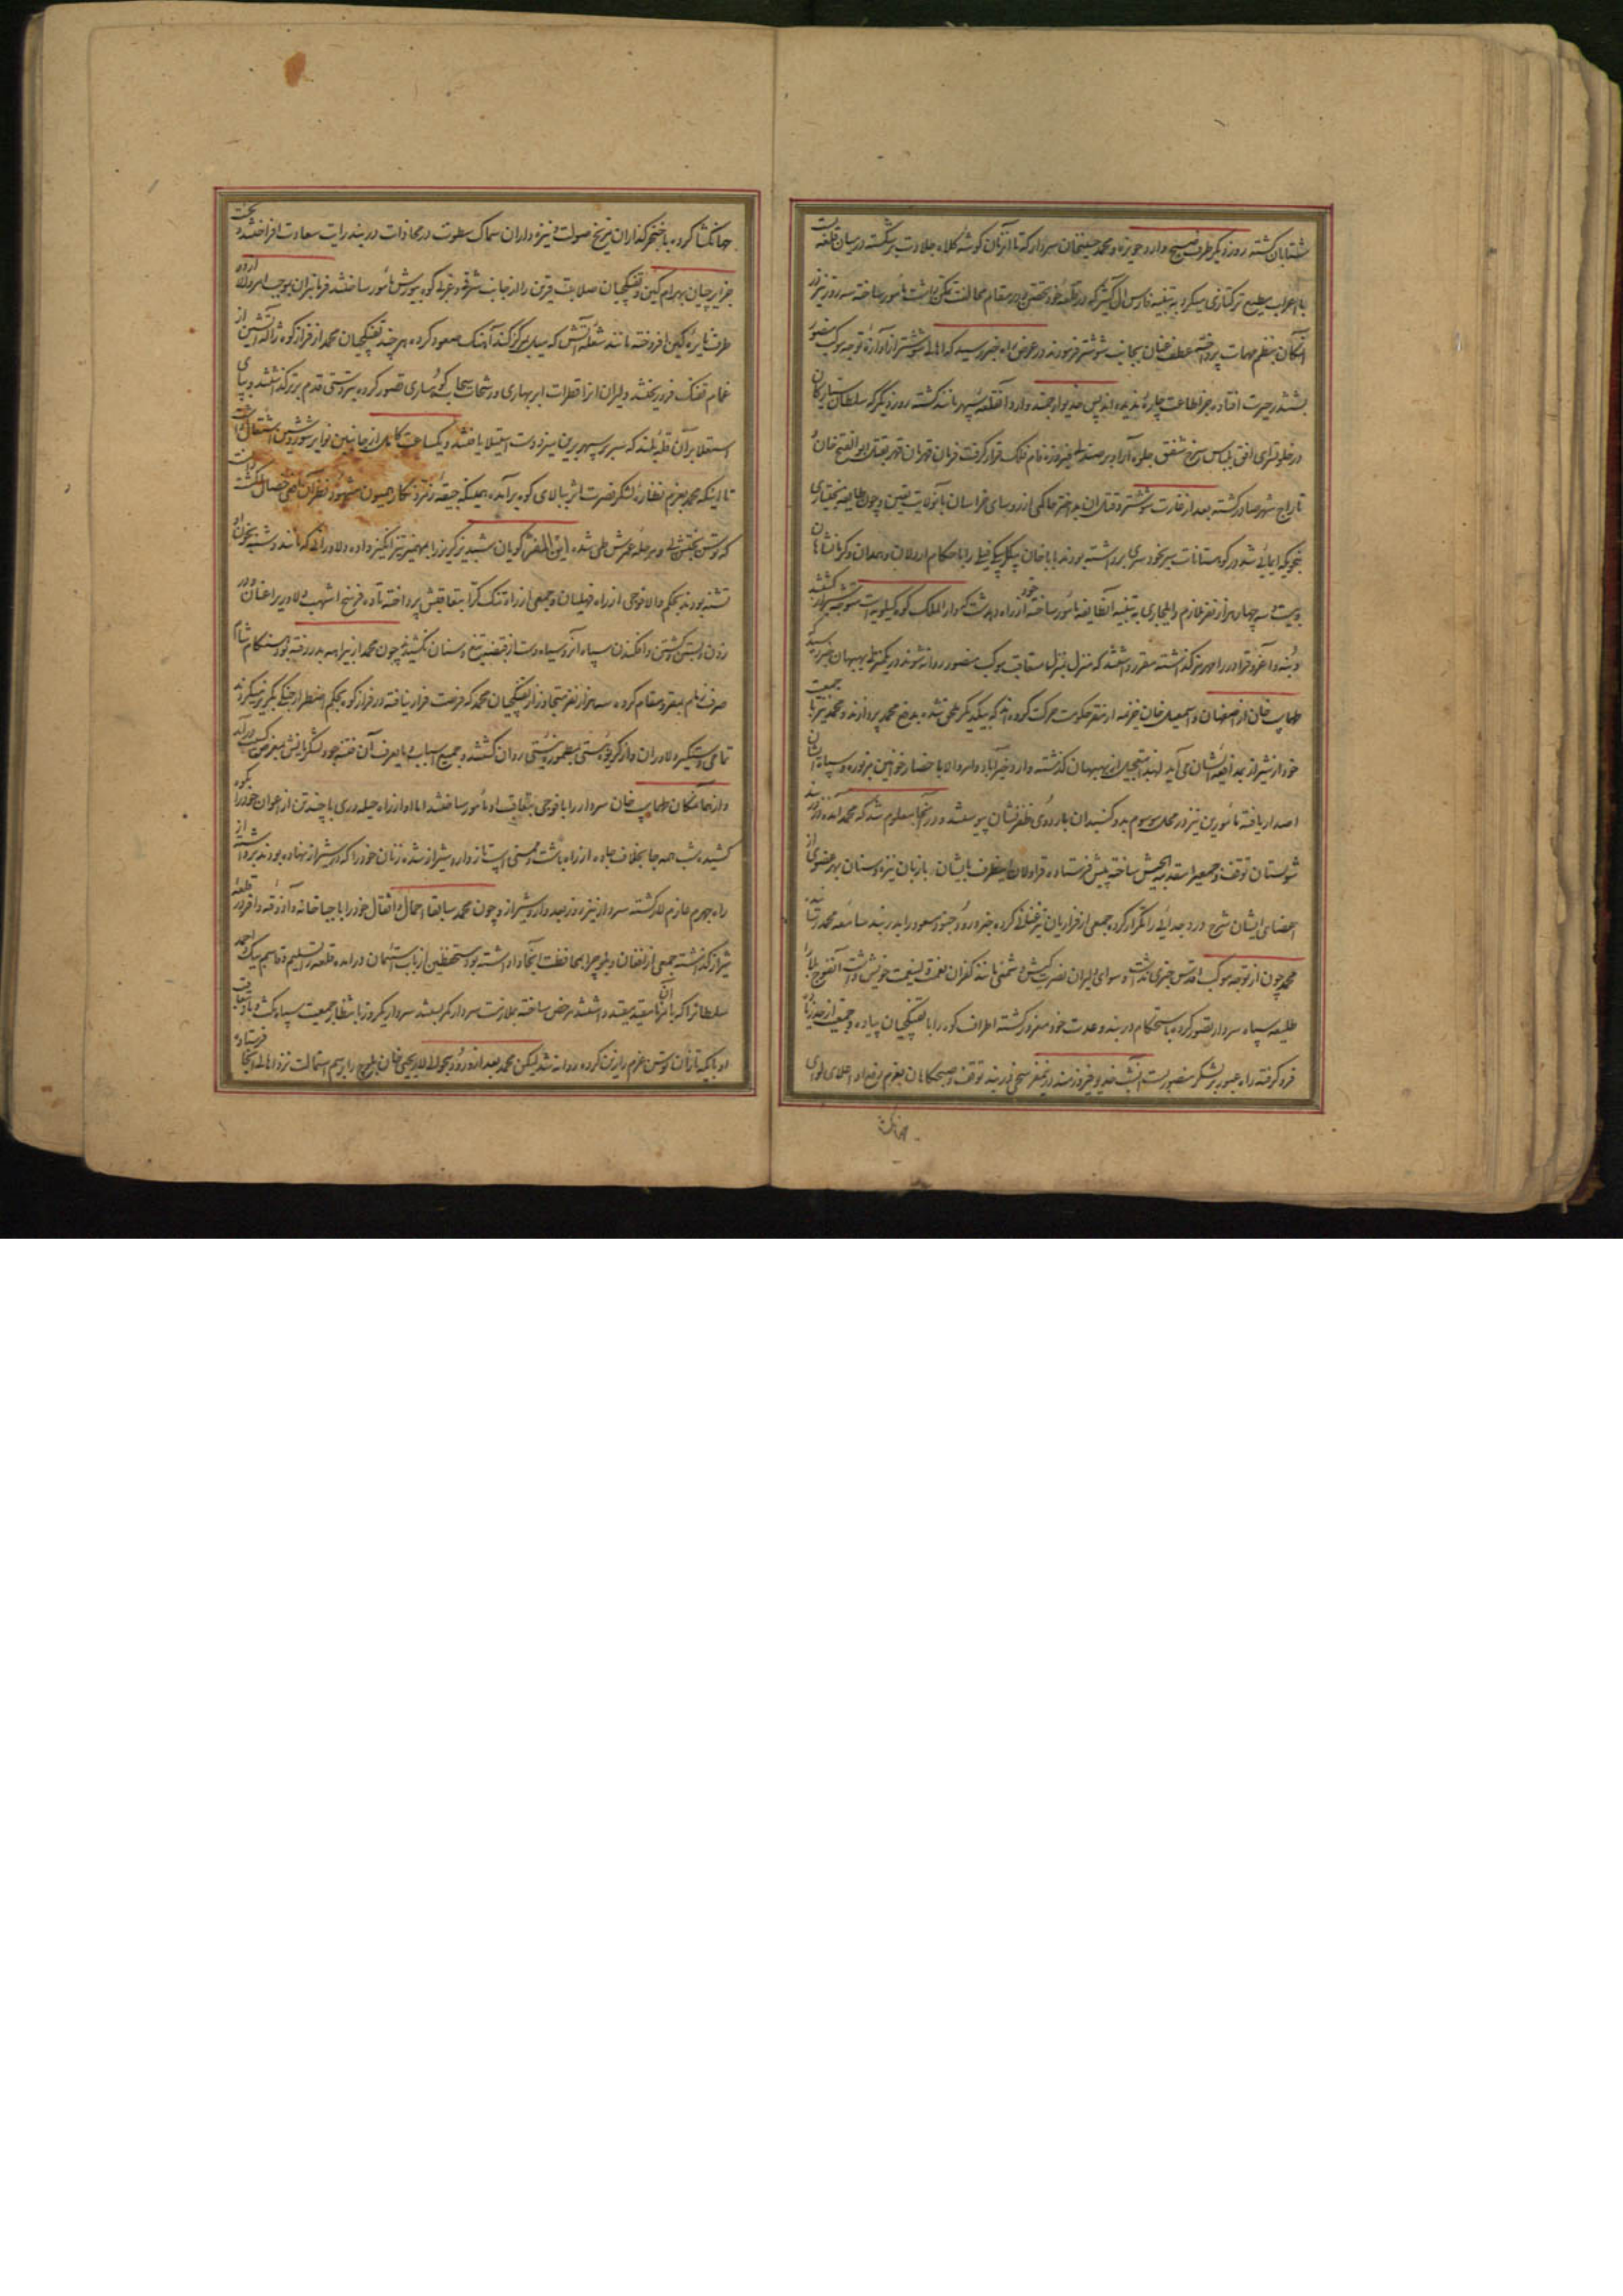 شتابان کشته روز دیگر طرف صبح وارد حویزه و محمد حسینخان سردار که تا آنزمان گوشه کلاه جلادت بر شکسته در میان قلعه
با اعراب مطیع ترکتازی میکرد به تنبیه فارس آل کثیر که در قلعه خود متحصن و در مقام مخالفت تمکن داشت مأمور ساخته سه روز نیز در
آنمکان بنظم مهمات پرداخته عطف عنان بجانب شوشتر فرمودند در عرض راه خبر رسید که اهالی شوشتر از آوازه توجه موکب منصور
بششدر حیرت افتاده جز اطاعت چاره ندیده اند پس خدیو ارجمند وارد آنقلعه سپهر مانند گشته روز دیگر که سلطان سیارگان
در خلوتسرای افق بلباس سرخ شفق جلوه آرا و بر صندلی فیروزه فام فلک قرار گرفت فرمان قهرمان قهر بقتل ابو الفتح خان و
تاراج شهر صادر گشته بعد از غارت شوشتر و قتل آن بد اختر حاکمی از رؤسای خراسان بآنولایت تعیین و چون طایفه بختیاری
بتحریک ایمائی شد در کوهستانات سر بخودسری برداشته بودند باباخان بیگلربیگی فیلی را با حکام اردلان و همدان و کرمانشاهان
و بیست و چهار هزار نفر ملازم و ایلجاری به تنبیه آنطایفه مأمور ساخته خود از راه دهدشت که دار الملک کوه کیلویه است متوجه شیراز گشتند
و بنه و آغروق را در رامهرمز گذاشته مقرر داشتند که منزل بمنزل متعاقب موکب منصور روانه شوند در یکمنزلی بهبهان خبر رسید
طهماسب خان از اصفهان و اسمعیل خان خزیمه از مقر حکومت حرکت کرده اند که بیکدیگر ملحق شده بدفع محمد پردازند و محمد نیز با جمعیت
خود از شیراز بمدافعه ایشان می آید لهذا بتعجیل از بهبهان گذشته وارد خیرآباد و امر والا باحضار خوانین مزبوره و سپاه ایشان
اصدار یافته مأمورین نیز در محل موسوم بدو گنبدان باردوی ظفرنشان پیوستند و در آنجا معلوم شد که محمد آمده در دربند
شولستان توقف و جمعی را مقدمه الجیش ساخته پیش فرستاده قراولان اینطرف بایشان بازبان نیزه و سنان بهر عضوی از
اعضای ایشان شرح درد جدایی را تکرار کرده جمعی از فراریان تیز عنانی کرده خبر ورود جنود مسعود را بدربند سامعه محمد رسانیدند
محمد چون از توجه موکب اقدس خبری نداشته و سوای دلیران نصرت کیش دشمنی مانند کفران نعمت ولینعمت خویش نداشت آنفوج را
طلیعه سپاه سردار تصور کرده باستحکام دربند و عدت خود مغرور گشته اطراف کوه را با تفنگچیان پیاده و جمعیت از حد زیاده
فرو گرفته راه عبور بر لشکر منصور بست آنشب خدیو فیروزمند در نیمفرسخی دربند توقف و صبحگاهان بعزم رزم اعدا اعلای لوای
جهانگشا
جهانگشا کرده با خنجر گذاران مریخ صولت و نیزه داران سماک سطوت در محاذات دربند رایت سعادت افراختند و
جزایرچیان بهرام کین و تفنگچیان صلابت قرین را از جانب شرقی و غربی کوه بیورش مأمور ساختند فرمانبران بموجب امر والا از دو
طرف نایره کین افروخته مانند شعله آتش که میل بمرکز کند آهنگ صعود کرده هر چند تفنگچیان محمد از فراز کوه ژاله آتشین از
غمام تفنگ فرو ریختند دلیران آنرا قطرات ابر بهاری و رشحات سحاب کوهساری تصور کرده بتردستی قدم برتر گذاشتند و پای
استعلا بر آن قله بلند که سر بر سپهر برین میزد دست استیلا یافتند و یکساعت کامل از جانبین نوایر شور و شین اشتعال داشت
تا اینکه محمد بعزم نظاره لشکر نصرت اثر ببالای کوه برآمده همینکه جیقه فرقد نگار همیون مشهود نظر آن ناقص خصال گشت
که توسن بختش پی و مرحله عمرش طی شده این المفر گویان شبدیز گریز را مهمیز تیز انگیز داده دلاورانی که مانند دشنه بخون او
تشنه بودند بحکم والا فوجی از راه فهلیان و جمعی از راه تنگ کرا بتعاقبش پرداخته تا ده فرسخ اشهب دلاوری را عنان و در
زدن و بستن و کشتن و افکندن سپاه آنروسیاه دست از قبضه تیغ و سنان نکشیدند چون محمد از بیراهه بدر رفته بود هنگام شام
صرف زمام بمقر و مقام کرده سه هزار نفر متجاوز از تفنگچیان محمد که فرصت فرار نیافته در فراز کوه بحکم اضطرار جنگ بگریز میکردند
تمامی دستگیر دلاوران و از گریوه هستی بمطموره نیستی روان گشتند و جمیع اسباب و مایعرف آن فتنه جو و لشکریانش بمعرض کسب درآمد
و از همانمکان طهماسب خان سردار را با فوجی بتعاقب او مأمور ساختند اما او از راه حیله وری با چند تن از اعوان خود را بکوه
کشیده شب همه جا بخلاف جاده از راه باشت و ممسنی استاز وارد شیراز شده زنان خود را که در شیراز نهاده بودند برداشته از
راه جهرم عازم لار گشته سردار نیز روز بعد وارد شیراز و چون محمد سابقا احمال و اثقال خود را با جباخانه و آذوقه وافر در قلعه
شیراز گذاشته جمعی از افغان و بلوچ را بمحافظت آنجا واداشته بود مستحفظین از باب استیمان درآمده قلعه را تسلیم و قاسم بیک و احمد
سلطان را که با آنها مقید میقید داشتند مرخص ساخته بملازمت سردار کمر بستند سردار یکروز بانتظار جمعیت سپاه مکث و بتعاقب
او بایکه تازان توسن عزم را زین کرده روانه شد لیکن محمد بعد از ورود بحوالی لار یحیی خان بلوچ را برسم استمالت نزد اهالی آنجا فرستاده